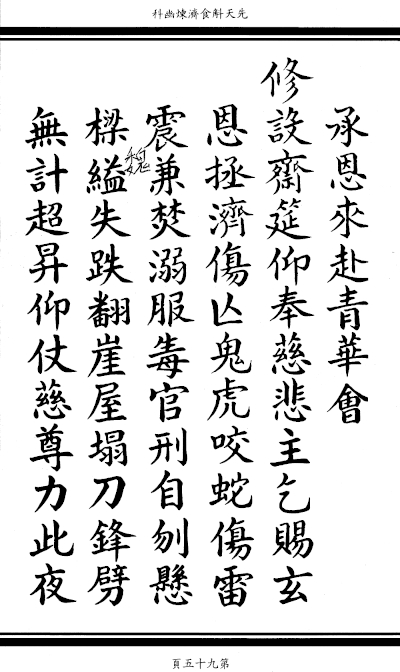 先天斛食濟煉幽科
承恩來赴青華會
修設齋筵仰奉慈悲主乞賜玄
恩拯濟傷亾鬼虎咬蛇傷雷
震兼焚溺服毒官刑自刎懸
樑縊失跌翻崖屋塌刀鋒劈
無計超昇仰仗慈尊力此夜
第九十五頁